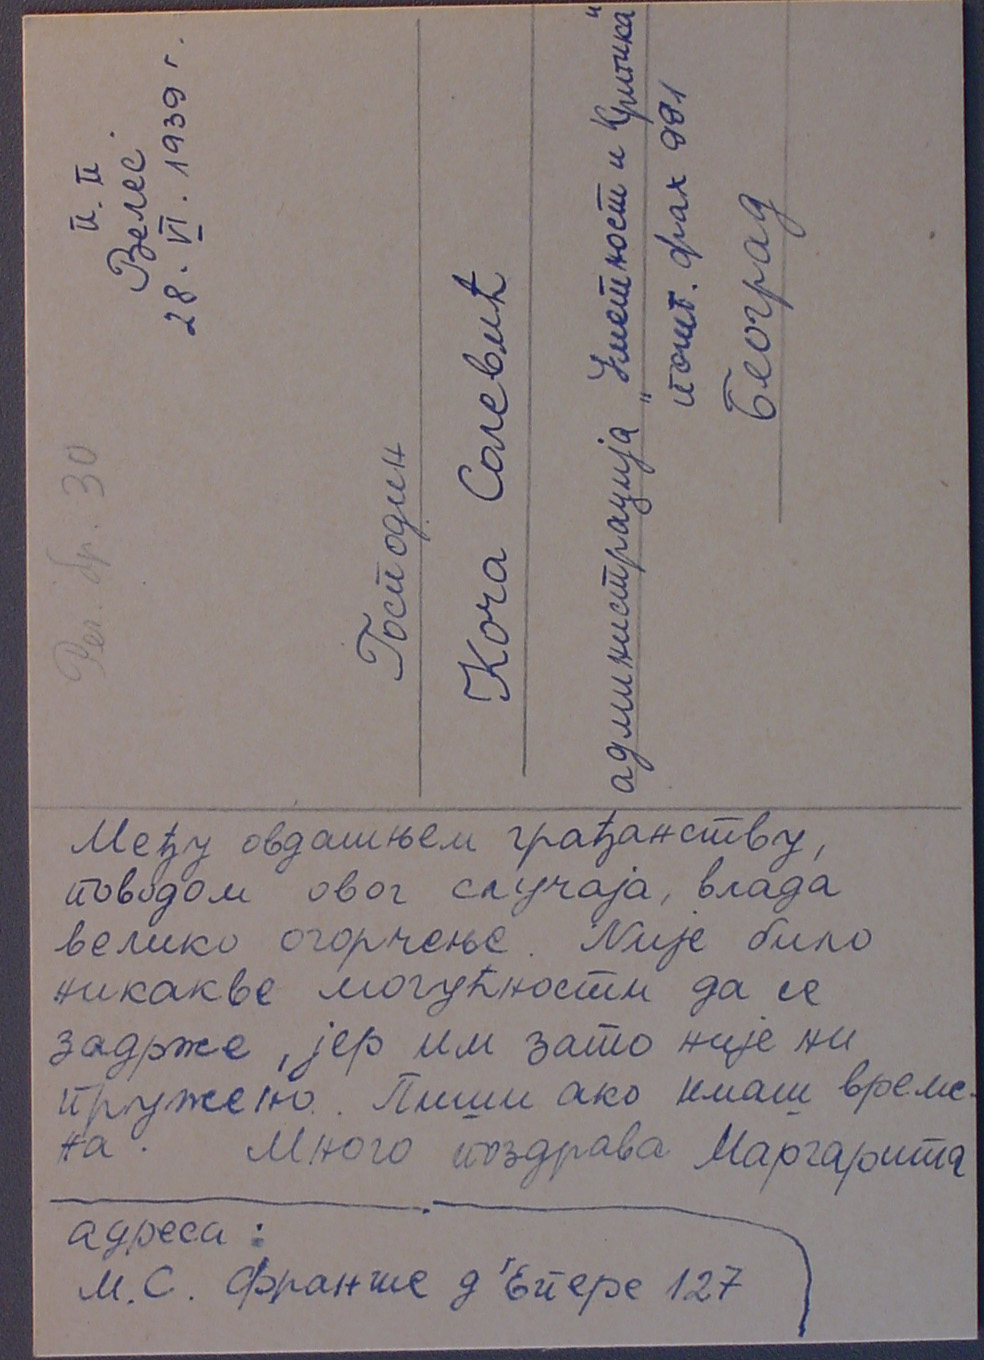 п. п
Велес.
28. VI. 1939 г.
Рег. бр. 30
Господин
Коча Солевић
администрација „Уметност и Критика“
пошт. фах 991
Београд
Међу овдашњем грађанству,
поводом овог случаја, влада
велико огорчење. Није било
никакве могућности да се
задрже, јер им зато није ни
пружено. Пиши ако имаш време-
на. Много поздрава Маргарита
адреса:
М.С. Франше д'Епере 127